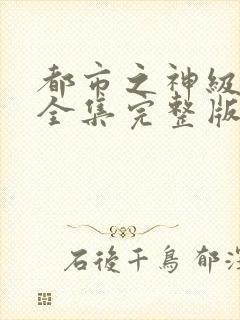 都市之神級
全集完整版
石後千鳥 郁深